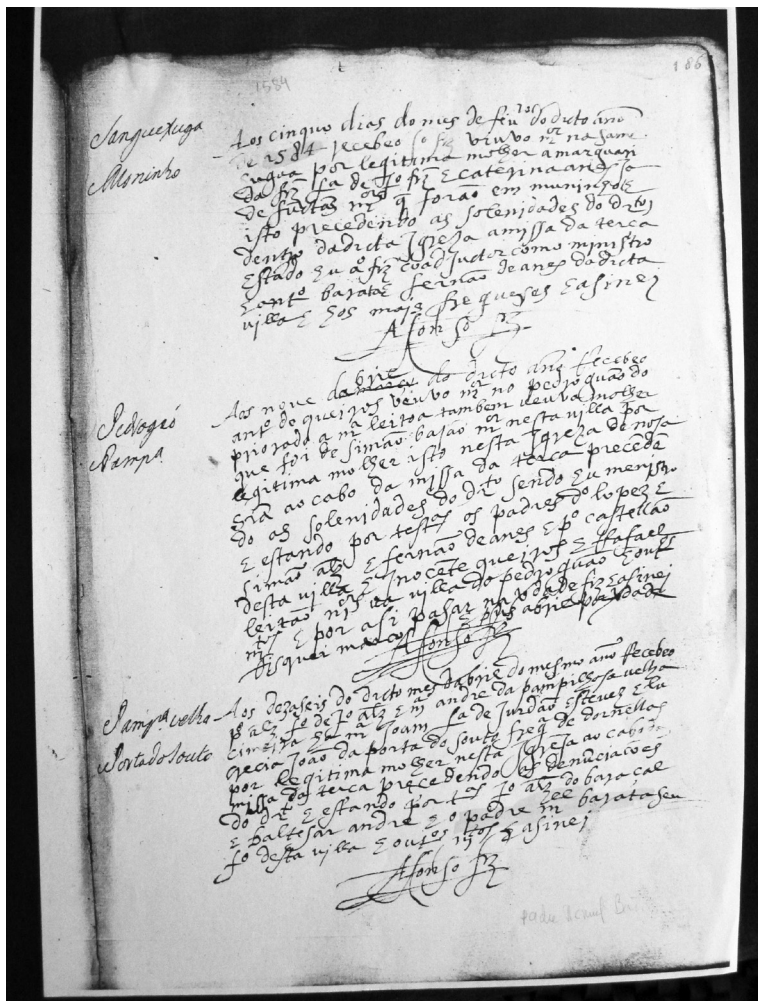 186
1584
Sanguexuga
Moninho
Aos cinquo dias do mes de feuro do dicto ano
de 1584 recebeo jo frz viuvo mor na same
xugua por legitima molher a marguari
da frz fa de jo frz E caterina anes ja
de functos mores q forão em muninho E
isto precedendo as solenidades do drto
dentro da dicta Igreja a missa da terca
Estado Eu ao frz coadjuctor como ministro
E anto barata E fernão deanes da dicta
villa E hos mais fregueses E asinei
Afonso frz
Pedrogão
Pampa
Aos nove dabril do dicto ano Recebeo
anto de queiros veuvo mor no pedroguão do
priorado a ma leitoa também veuva molher
que foi de simão bajão mor nesta villa por
legitima molher isto nesta Igreja de nosa
sra ao cabo da missa da terca preceden
do as solenidades do drto sendo Eu menistro
E estando por testas os padres do lopez E
simão alz E fernão deanes E po castellão
desta villa E Inocete queiros E Rafael
leitão mores na villa do pedroguão E outos
mtos E por asi pasar na verdade fiz E asinei
Risquei marco
Afonso frz
Pampa velha
Porta do souto
Aos dezaseis do dicto mes dabril do mesmo ano Recebeo
po alz fo de jo alz E ma andre da pampilhosa velha
cimeira ha ma joam fa de jurdão estevez E lu
crecia joão da porta do souto frega de dornellas
por legitima molher nesta Igreja ao cabo da
missa da terca precedendo as denunciacoes
do drto E estando por tas jo alz do baracal
E baltesar andre E o padre mel barata seu
fo desta villa E outos mtos E asinei
Afonso frz